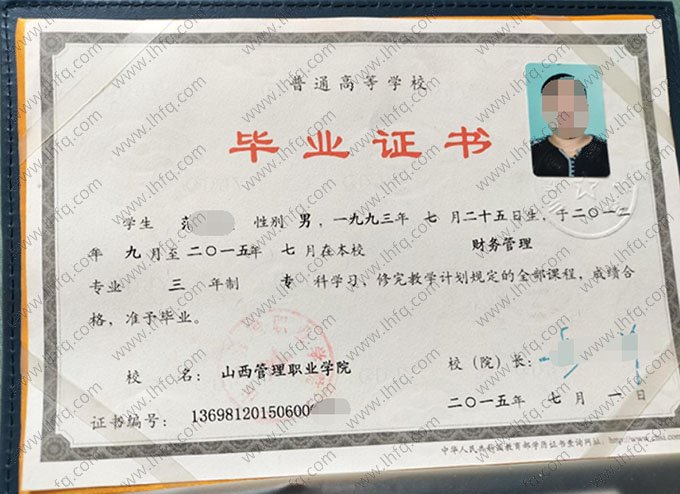 普通高等学校
毕业证书
学生 范 性别 男，一九九三年 七 月二十五日生，于二〇一二
年 九 月至二〇一五年 七 月在本校 财务管理
专业 三 年制 专 科学习，修完教学计划规定的全部课程，成绩合
格，准予毕业。
校 名： 山西管理职业学院 校（院）长：
证书编号： 13698120150600 二〇一五年 七 月 一 日
中华人民共和国教育部学历证书查询网址：http://www.chsi.com
www.lhfq.com